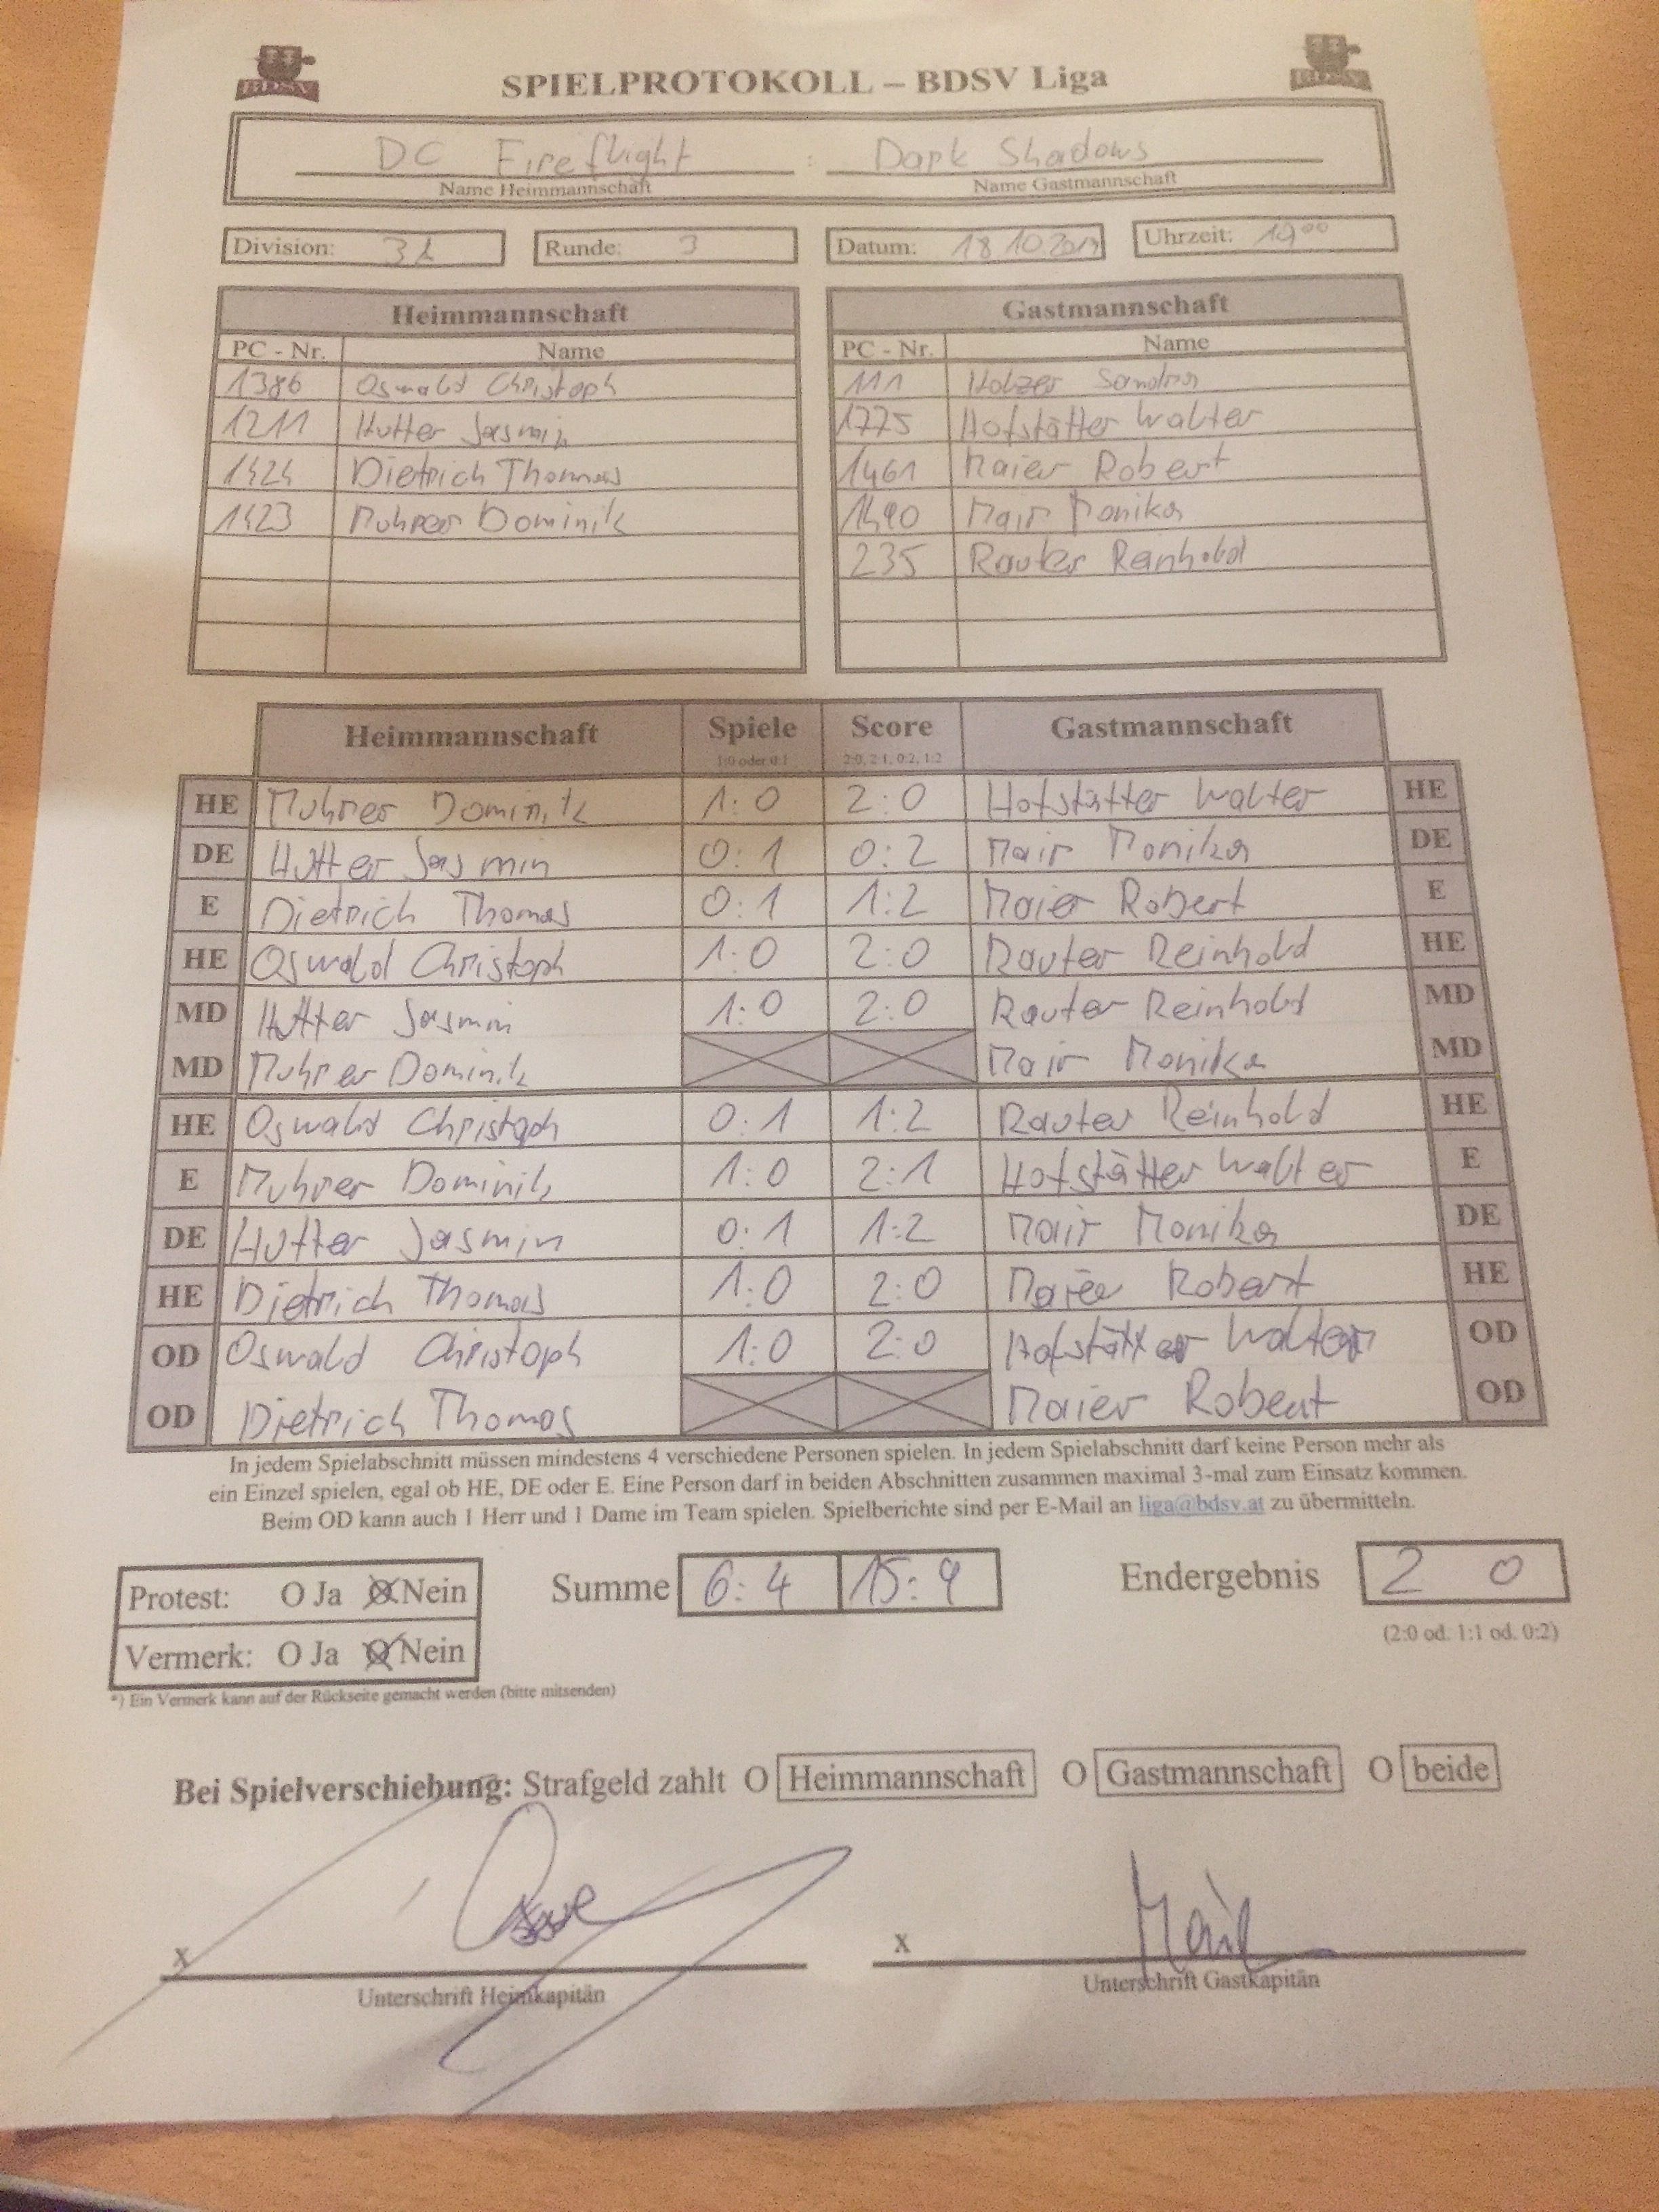 BDSV SPIELPROTOKOLL – BDSV Liga BDSV
DC Fireflight : Dark Shadows
Name Heimmannschaft Name Gastmannschaft
Division: Runde: 3 Datum: 18.10.2017 Uhrzeit: 19⁰⁰
Heimmannschaft Gastmannschaft
PC - Nr. Name PC - Nr. Name
1386 Oswald Christoph 111 Holzer Sandra
1211 Hutter Jasmin 1775 Hofstätter Walter
1424 Dietrich Thomas 1461 Maier Robert
1423 Muhrer Dominik 1490 Mair Monika
235 Rauter Reinhold
Heimmannschaft Spiele Score Gastmannschaft
1:0 oder 0:1 2:0, 2:1, 0:2, 1:2
HE Muhrer Dominik 1:0 2:0 Hofstätter Walter HE
DE Hutter Jasmin 0:1 0:2 Mair Monika DE
E Dietrich Thomas 0:1 1:2 Maier Robert E
HE Oswald Christoph 1:0 2:0 Rauter Reinhold HE
MD Hutter Jasmin 1:0 2:0 Rauter Reinhold MD
MD Muhrer Dominik Mair Monika MD
HE Oswald Christoph 0:1 1:2 Rauter Reinhold HE
E Muhrer Dominik 1:0 2:1 Hofstätter Walter E
DE Hutter Jasmin 0:1 1:2 Mair Monika DE
HE Dietrich Thomas 1:0 2:0 Maier Robert HE
OD Oswald Christoph 1:0 2:0 Hofstätter Walter OD
OD Dietrich Thomas Maier Robert OD
In jedem Spielabschnitt müssen mindestens 4 verschiedene Personen spielen. In jedem Spielabschnitt darf keine Person mehr als
ein Einzel spielen, egal ob HE, DE oder E. Eine Person darf in beiden Abschnitten zusammen maximal 3-mal zum Einsatz kommen.
Beim OD kann auch 1 Herr und 1 Dame im Team spielen. Spielberichte sind per E-Mail an liga@bdsv.at zu übermitteln.
Protest: O Ja O Nein Summe 6:4 15:9 Endergebnis 2 0
Vermerk: O Ja O Nein (2:0 od. 1:1 od. 0:2)
*) Ein Vermerk kann auf der Rückseite gemacht werden (bitte mitsenden)
Bei Spielverschiebung: Strafgeld zahlt O Heimmannschaft O Gastmannschaft O beide
x x
Unterschrift Heimkapitän Unterschrift Gastkapitän